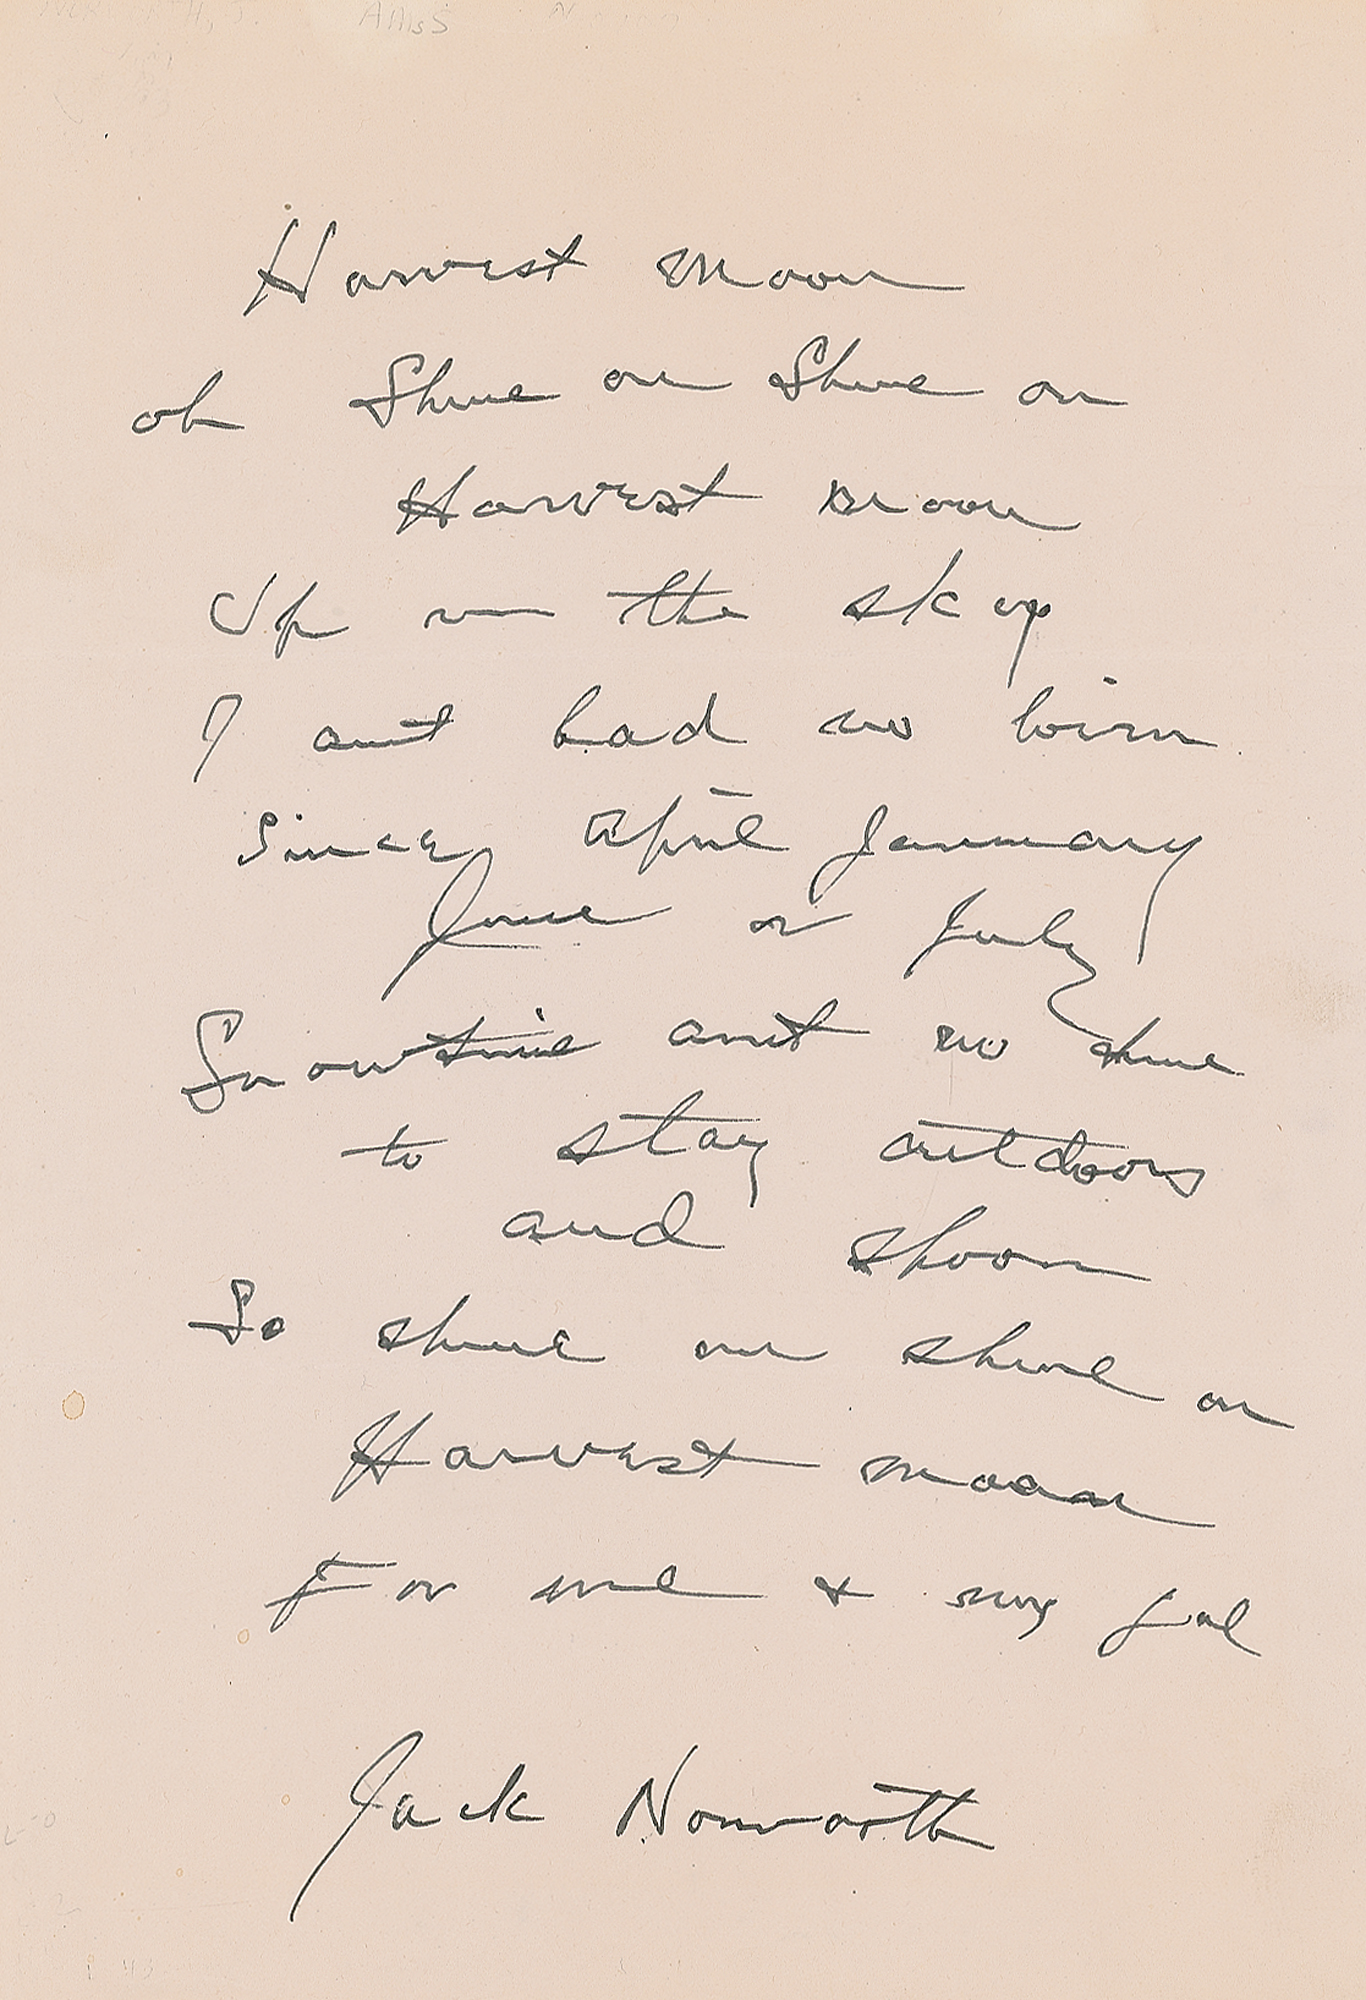 AMsS
Harvest Moon
oh Shine on Shine on
Harvest Moon
Up in the sky
I aint had no lovin
Since April January
June or July
Snowtime aint no time
to stay outdoors
and spoon
So shine on shine on
Harvest moon
For me & my gal
Jack Norworth